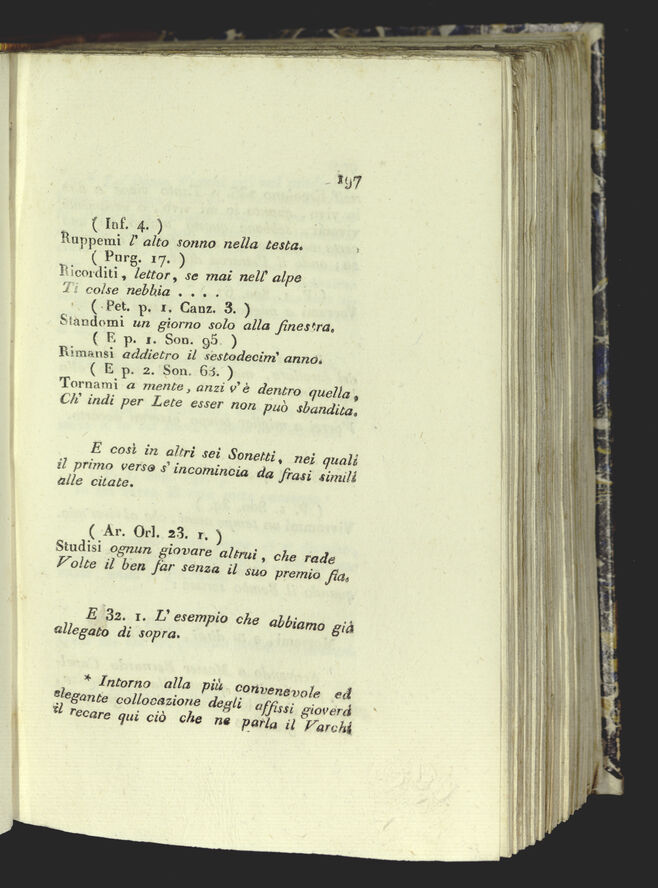 197
( Inf. 4. )
Ruppemi l' alto sonno nella testa.
( Purg. 17. )
Ricorditi, lettor, se mai nell' alpe
Ti colse nebbia . . . .
( Pet. p. 1. Canz. 3. )
Standomi un giorno solo alla finestra.
( E p. 1. Son. 95. )
Rimansi addietro il sestodecim' anno.
( E p. 2. Son. 63. )
Tornami a mente, anzi v'è dentro quella,
Ch' indi per Lete esser non può sbandita.
E così in altri sei Sonetti, nei quali
il primo verso s' incomincia da frasi simili
alle citate.
( Ar. Orl. 23. 1. )
Studisi ognun giovare altrui, che rade
Volte il ben far senza il suo premio fia.
E 32. 1. L' esempio che abbiamo già
allegato di sopra.
* Intorno alla più convenevole ed
elegante collocazione degli affissi gioverà
il recare qui ciò che ne parla il Varchi